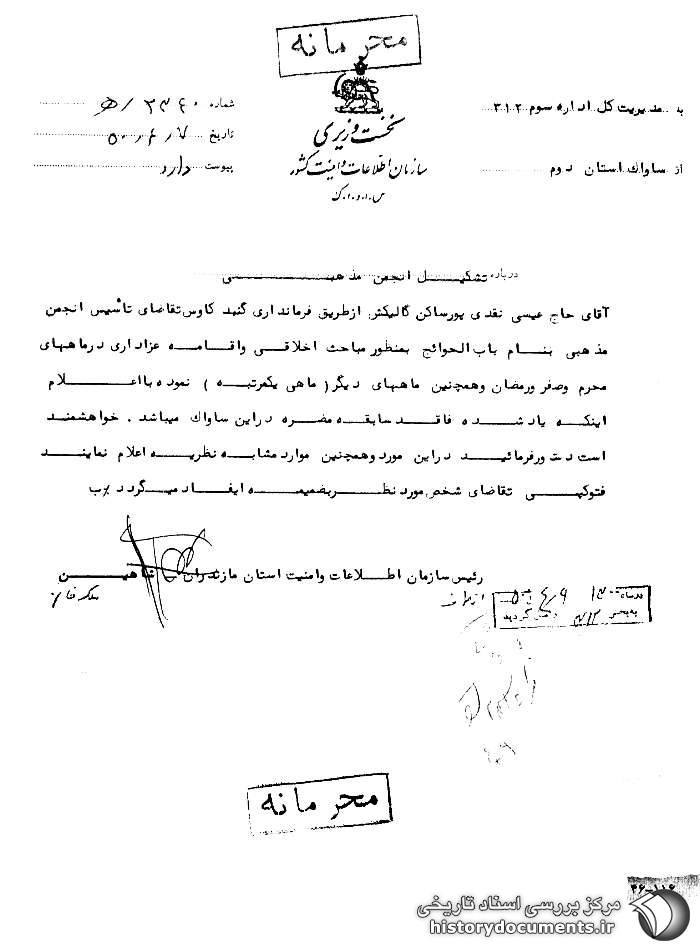 محرمانه
نخست وزیری
سازمان اطلاعات و امنیت کشور
س.ا.و.ا.ک
به مدیریت کل اداره سوم ۳۱۲
از ساواک استان دوم
شماره ۲۳۶۰/ه
تاریخ
پیوست دارد
درباره تشکیل انجمن مذهبی
آقای حاج عیسی نقدی پور ساکن گالیکش از طریق فرمانداری گنبد کاوس تقاضای تأسیس انجمن
مذهبی بنام باب الحوائج بمنظور مباحث اخلاقی واقامه عزاداری درماههای
محرم وصفر ورمضان وهمچنین ماههای دیگر (ماهی یکمرتبه) نموده بااعلام
اینکه یاد شده فاقد سابقه مضره دراین ساواک میباشد . خواهشمند
است دستور فرمائید دراین مورد وهمچنین موارد مشابه نظریه اعلام نمایند
فتوکپی تقاضای شخص مورد نظر بضمیمه ایفاد میگردد ب
رئیس سازمان اطلاعات وامنیت استان مازندران شاهین
به بخش ۳۱۲ واصل گردید
محرمانه
۴۶-۱۱۶
مرکز بررسی اسناد تاریخی
historydocuments.ir